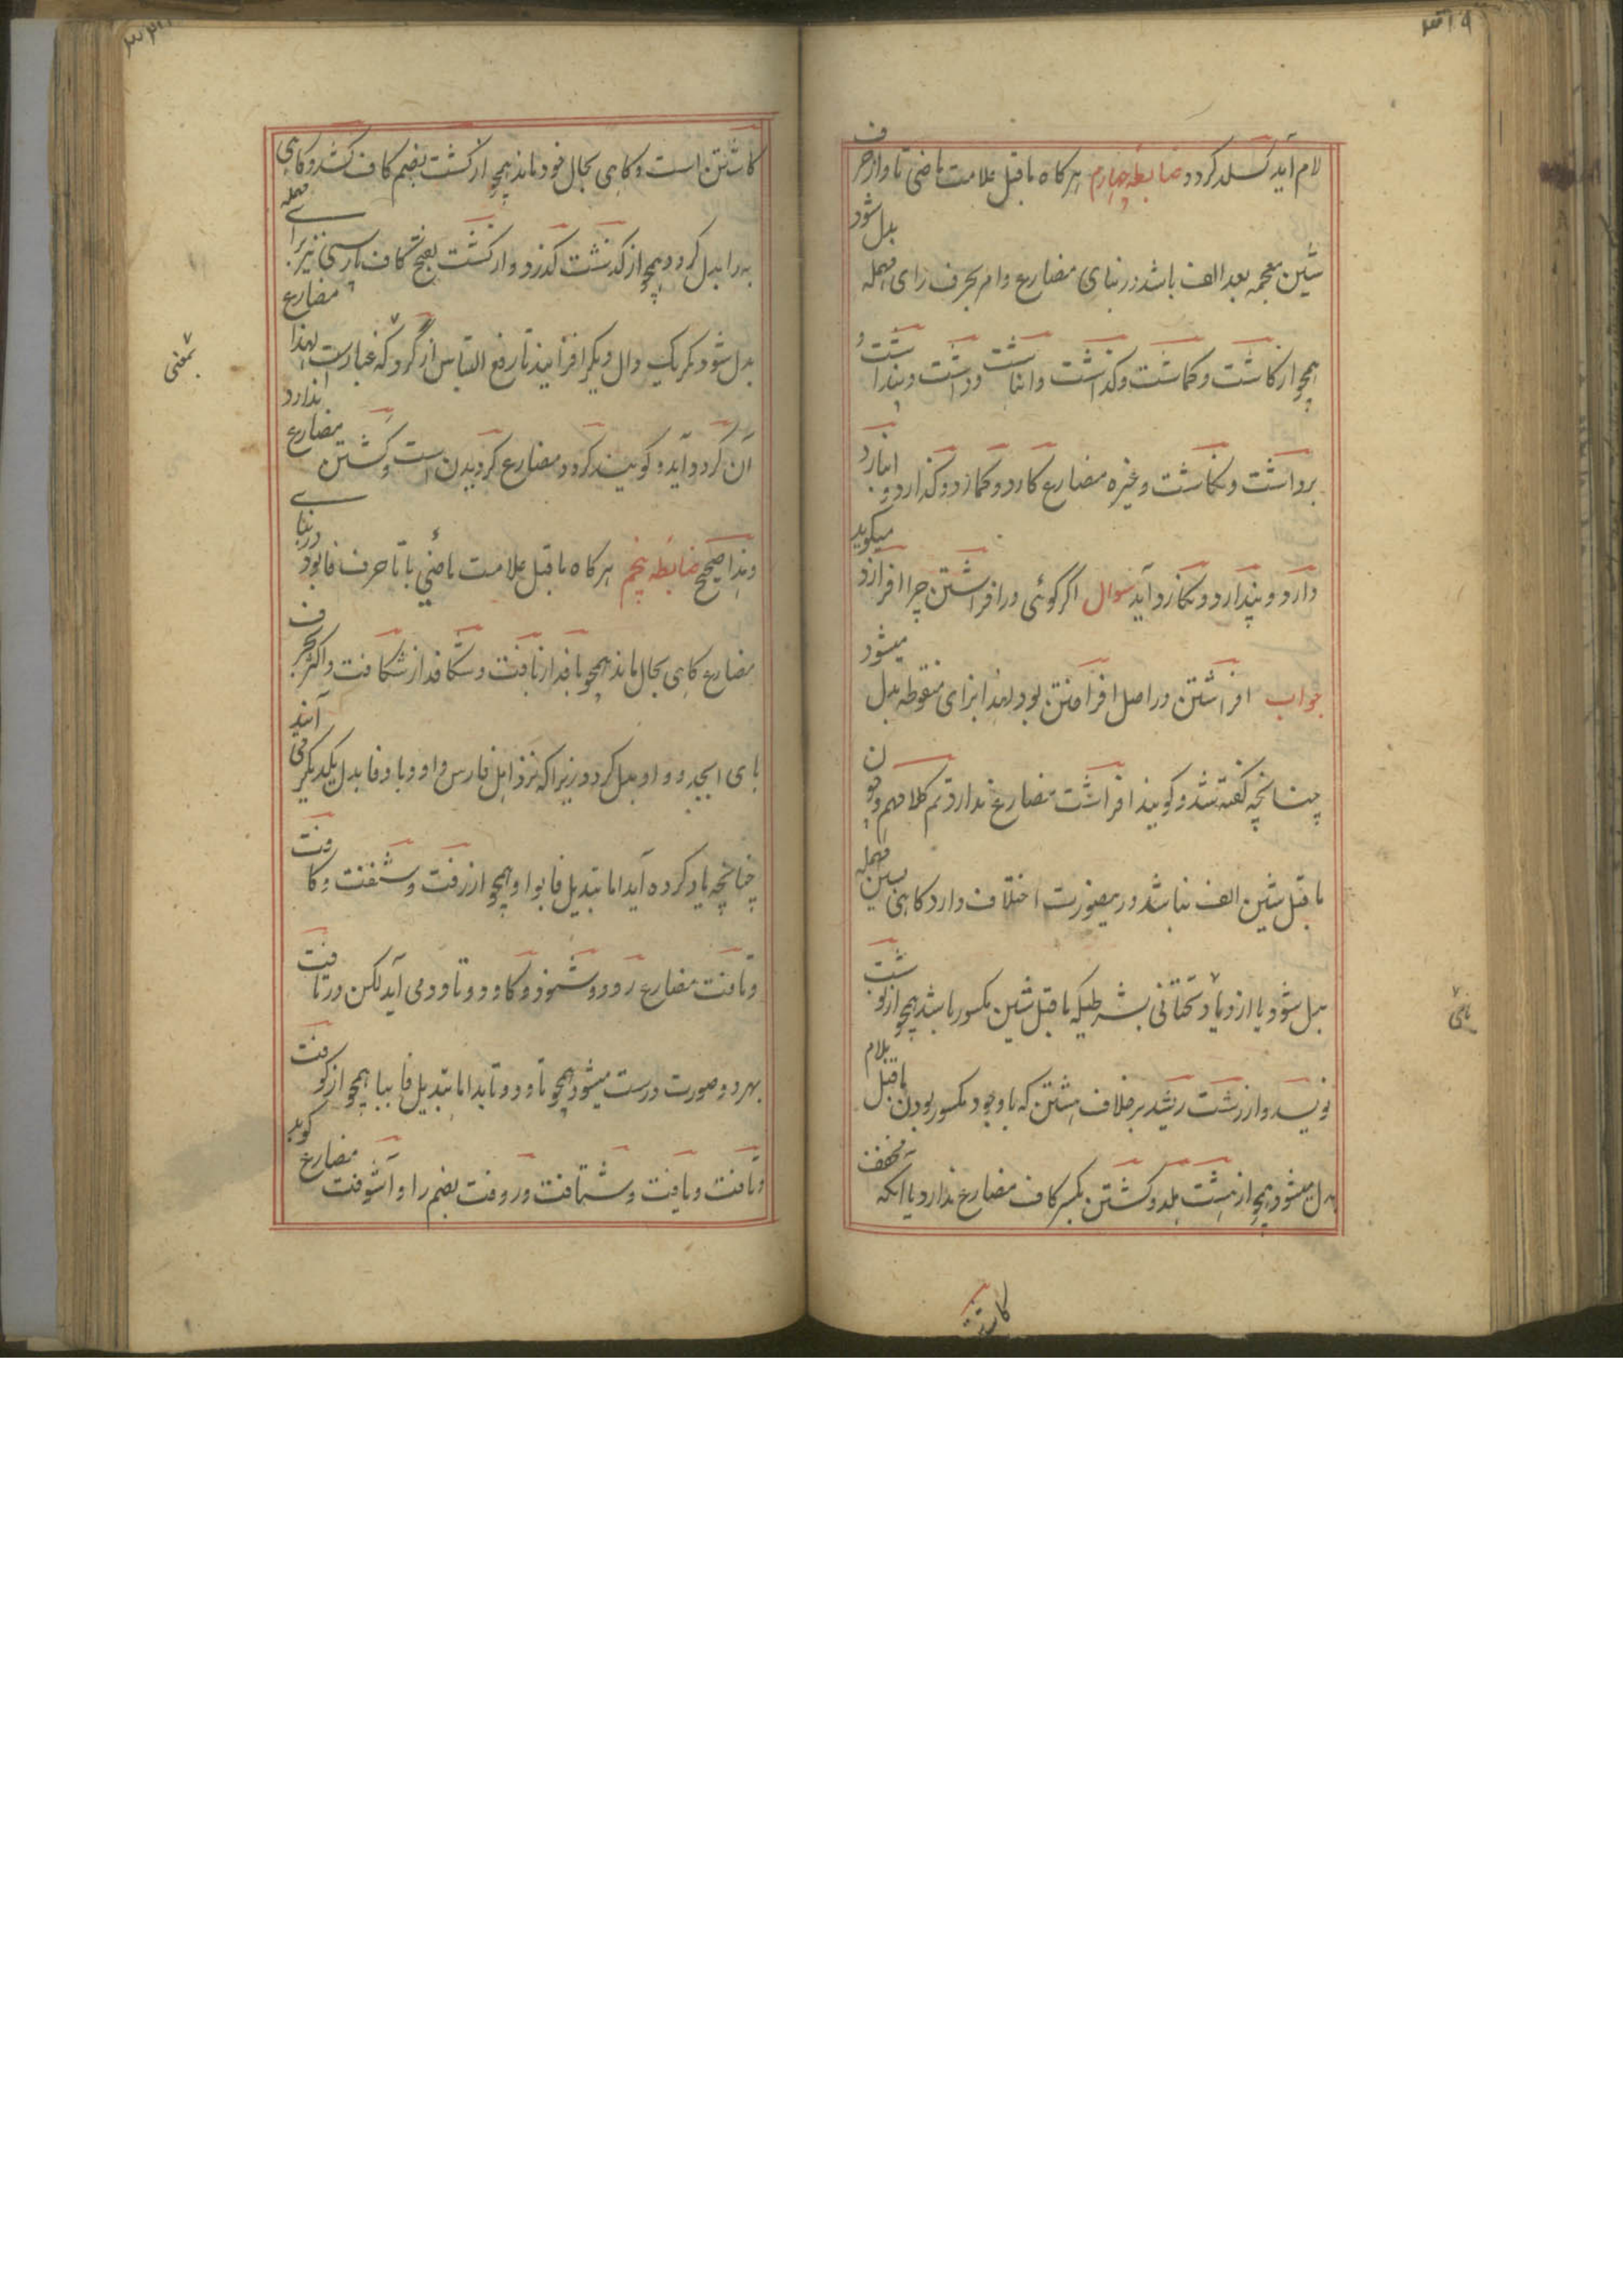 ۳۱۹
لام آید گسلد گردد ضابطه چهارم هرکاه ماقبل علامت ماضی تا و از حرف
شین معجمه بعد الف باشد در بنای مضارع و امر بحرف رای مهمله بدل شود
همچو از کاشت و کماشت و کذاشت و انباشت و داشت و پنداشت و
برداشت و نکاشت و غیره مضارع کارد و کمارد و کذارد و انبارد
دارد و پندارد و نکارد آید سوال اگر کوئی در افراشتن چرا افرازد میکوید
جواب افراشتن در اصل افراختن بود لهذا بزای منقوطه بدل میشود
چنانچه کفته شد و کویند افراشت مضارع ندارد تم کلامهم و چون
ماقبل شین الف نباشد درینصورت اختلاف دارد کاهی بسین مهمله
بدل شود یا ازدیاد تحتانی بشرطیکه ماقبل شین مکسور باشد همچو از نوشت
نویسد و از رشت ریشد برخلاف هشتن که باوجود مکسور بودن ماقبل بلام
بدل میشود همچو از هشت هلد و کشتن بکسر کاف مضارع ندارد یا آنکه مخفف
یامی
کاشتن
کاشتن است و کاهی بحال خود ماند همچو از کشت بضم کاف کشد و کاهی
به را بدل کردد همچو از کذشت کذرد و از کشت بفتح کاف پارسی نیز برای مهمله
بدل شود مکر یک دال دیکر افزایند تا رفع التباس از گرد که عبارت لهذا مضارع
بمعنی
آن گردد آید و کویند کردد مضارع کردیدن است و کشتن مضارع ندارد
و هذا صحیح ضابطه پنجم هرکاه ماقبل علامت ماضی با تا حرف فا بود در بنای
مضارع کاهی بحال ماند همچو بافد از بافت و شکافد از شکافت و اکثر بحرف
بای ابجد و واو بدل کردد زیرا که نزد اهل فارس واو و با و فا بدل یکدیکر می آیند
چنانچه یاد کرده آید اما تبدیل فا بواو همچو از رفت و شنفت و کافت
و تافت مضارع رود و شنود و کاود و تاود می آید لکن در تافت
بهر دو صورت درست میشود همچو تاود و تابد اما تبدیل فا ببا همچو از کوفت
و تافت و یافت و شتافت و روفت بضم را و آشوفت مضارع کوبد